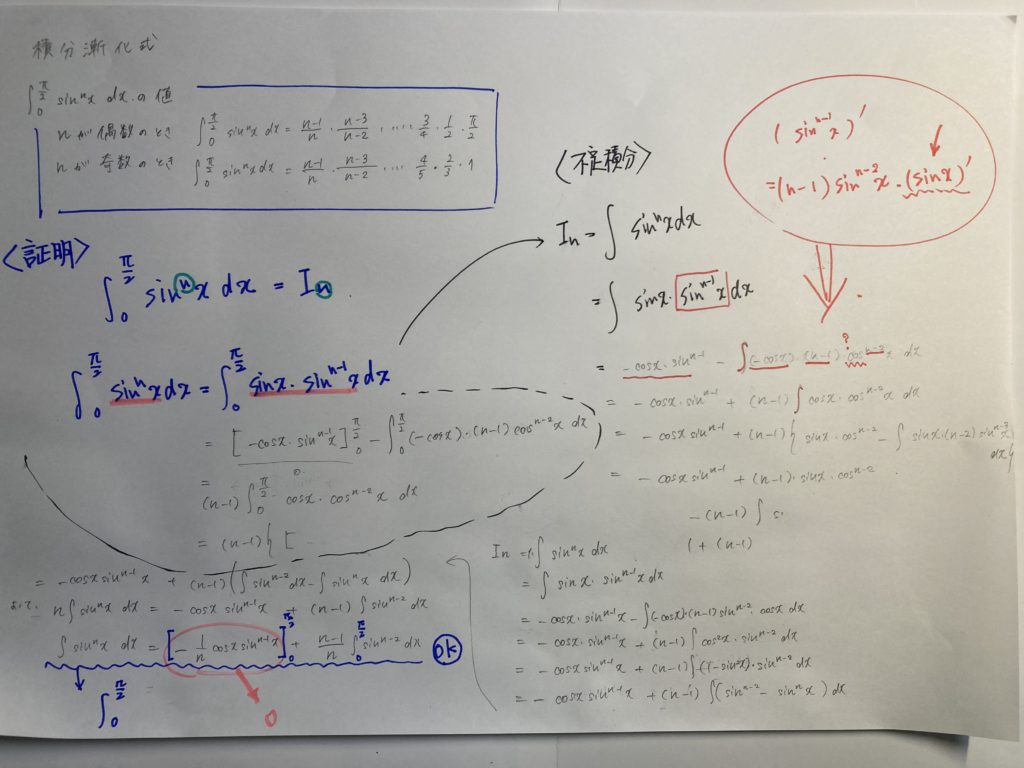 積分漸化式
∫₀^{π/2} sinⁿx dx の値
nが偶数のとき ∫₀^{π/2} sinⁿx dx = (n-1)/n · (n-3)/(n-2) ····· 3/4 · 1/2 · π/2
nが奇数のとき ∫₀^{π/2} sinⁿx dx = (n-1)/n · (n-3)/(n-2) ···· 4/5 · 2/3 · 1
〈証明〉
∫₀^{π/2} sinⁿx dx = Iₙ
∫₀^{π/2} sinⁿx dx = ∫₀^{π/2} sinx · sin^{n-1}x dx
= [-cosx · sin^{n-1}x]₀^{π/2} - ∫₀^{π/2} (-cosx)·(n-1)cos^{n-2}x dx
0
= (n-1)∫₀^{π/2} cosx · cos^{n-2}x dx
= (n-1){ [
= -cosx sin^{n-1}x + (n-1)(∫sin^{n-2}dx - ∫sinⁿx dx)
n∫sinⁿx dx = -cosx sin^{n-1}x + (n-1)∫sin^{n-2}dx
∫sinⁿx dx = [-1/n cosx sin^{n-1}x]₀^{π/2} + (n-1)/n ∫₀^{π/2} sin^{n-2}dx OK
∫₀^{π/2}
0
〈不定積分〉
Iₙ = ∫ sinⁿx dx
= ∫ sinx · sin^{n-1}x dx
= -cosx · sin^{n-1} - ∫(-cosx)·(n-1)·cos^{n-2}x dx
?
= -cosx · sin^{n-1} + (n-1)∫cosx · cos^{n-2}x dx
= -cosx sin^{n-1} + (n-1){ sinx · cos^{n-2} - ∫sinx·(n-2) sin^{n-3}x dx}
= -cosx sin^{n-1} + (n-1)·sinx · cos^{n-2}
-(n-1)∫s
(1 + (n-1)
Iₙ = ∫ sinⁿx dx
= ∫ sinx · sin^{n-1}x dx
= -cosx · sin^{n-1}x - ∫(-cosx)(n-1)sin^{n-2} · cosx dx
= -cosx · sin^{n-1}x + (n-1)∫cos²x · sin^{n-2}dx
= -cosx sin^{n-1}x + (n-1)∫(1-sin²x)·sin^{n-2}dx
= -cosx sin^{n-1}x + (n-1)∫(sin^{n-2} - sinⁿx)dx
(sin^{n-1}x)′
=(n-1)sin^{n-2}x · (sinx)′